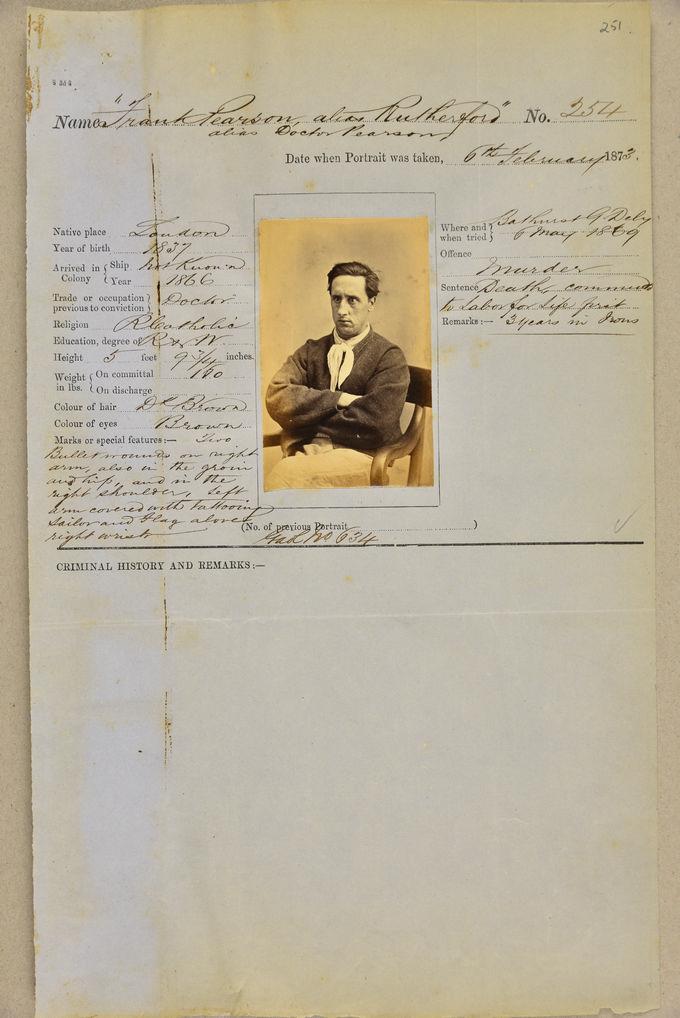 251
Name "Frank Pearson, alias Rutherford" No. 254
alias Doctor Pearson
Date when Portrait was taken, 6th February 1873.
Native place London
Year of birth 1837
Arrived in Colony { Ship Not Known
Year 1866
Trade or occupation previous to conviction } Doctor
Religion R Catholic
Education, degree of R & W
Height 5 feet 9 3/4 inches.
Weight in lbs. { On committal 160
On discharge
Colour of hair Dk Brown
Colour of eyes Brown
Marks or special features:— Two
Bullet wounds on right
arm, also in the groin
and hip, and in the
right shoulder, left
arm covered with tattooing
Sailor and Flag above
right wrist
Where and when tried } Bathurst G. Dely
6 May 1869
Offence
Murder
Sentence Death, commuted
to Labor for Life first
Remarks:— 3 years in Irons
(No. of previous Portrait )
Gaol No 634
CRIMINAL HISTORY AND REMARKS:—